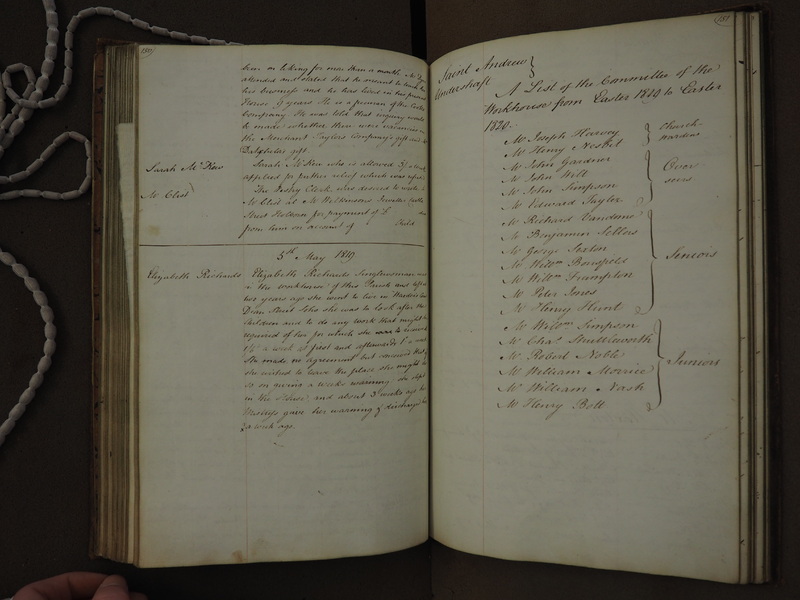 been on liking for more than a month Mr
attended and stated that he meant to
his business and he has lived in his present
House 9 years He is a freeman of the
Company He was told that enquiry would
be made whether there were vacancies in
the Merchant Taylors Company's gift and
gift
Sarah McKew
Sarah McKew who is allowed
applied for further relief which was
Mr Clist
The Vestry Clerk was desired to write to
Mr Clist at Mr Wilkinsons Jeweller Castle
Street Holborn for payment of £
from him on account of Child
5th May 1819
Elizabeth Richards
Elizabeth Richards Singlewoman now
in the workhouse of this Parish and
two years ago she went to live in
Dean Street Soho she was to look after the
Children and to do any work that might be
required of her for which she was to
a week at first and afterwards
She made no agreement but conceived that if
she wished to leave the place she might
so on giving a weeks warning she slept
in the House and about 3 weeks ago
gave her warning & discharged her
a week ago.
181
Saint Andrew
Undershaft
A List of the Committee of the
Workhouse from Easter 1819 to Easter
1820.
Mr Joseph Harvey
Mr Henry Nesbit
Church
wardens
Mr John Gardner
Mr John Witt
Mr John Simpson
Mr Edward Taylor
Over
seers
Mr Richard Vandome
Mr Benjamin Sellers
Mr George Sexton
Mr Willm Bousfield
Mr Willm Frampton
Mr Peter Jones
Mr Henry Hunt
Seniors
Mr Willm Simpson
Mr Chas Shuttleworth
Mr Robert Noble
Mr William Morrice
Mr William Nash
Mr Henry Bott
Juniors